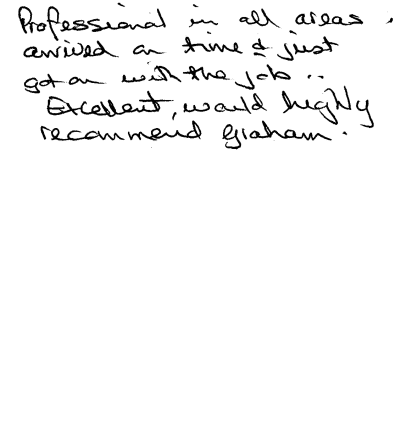 Professional in all areas.
arrived on time & just
got on with the job ..
Excellent, would highly
recommend Graham.